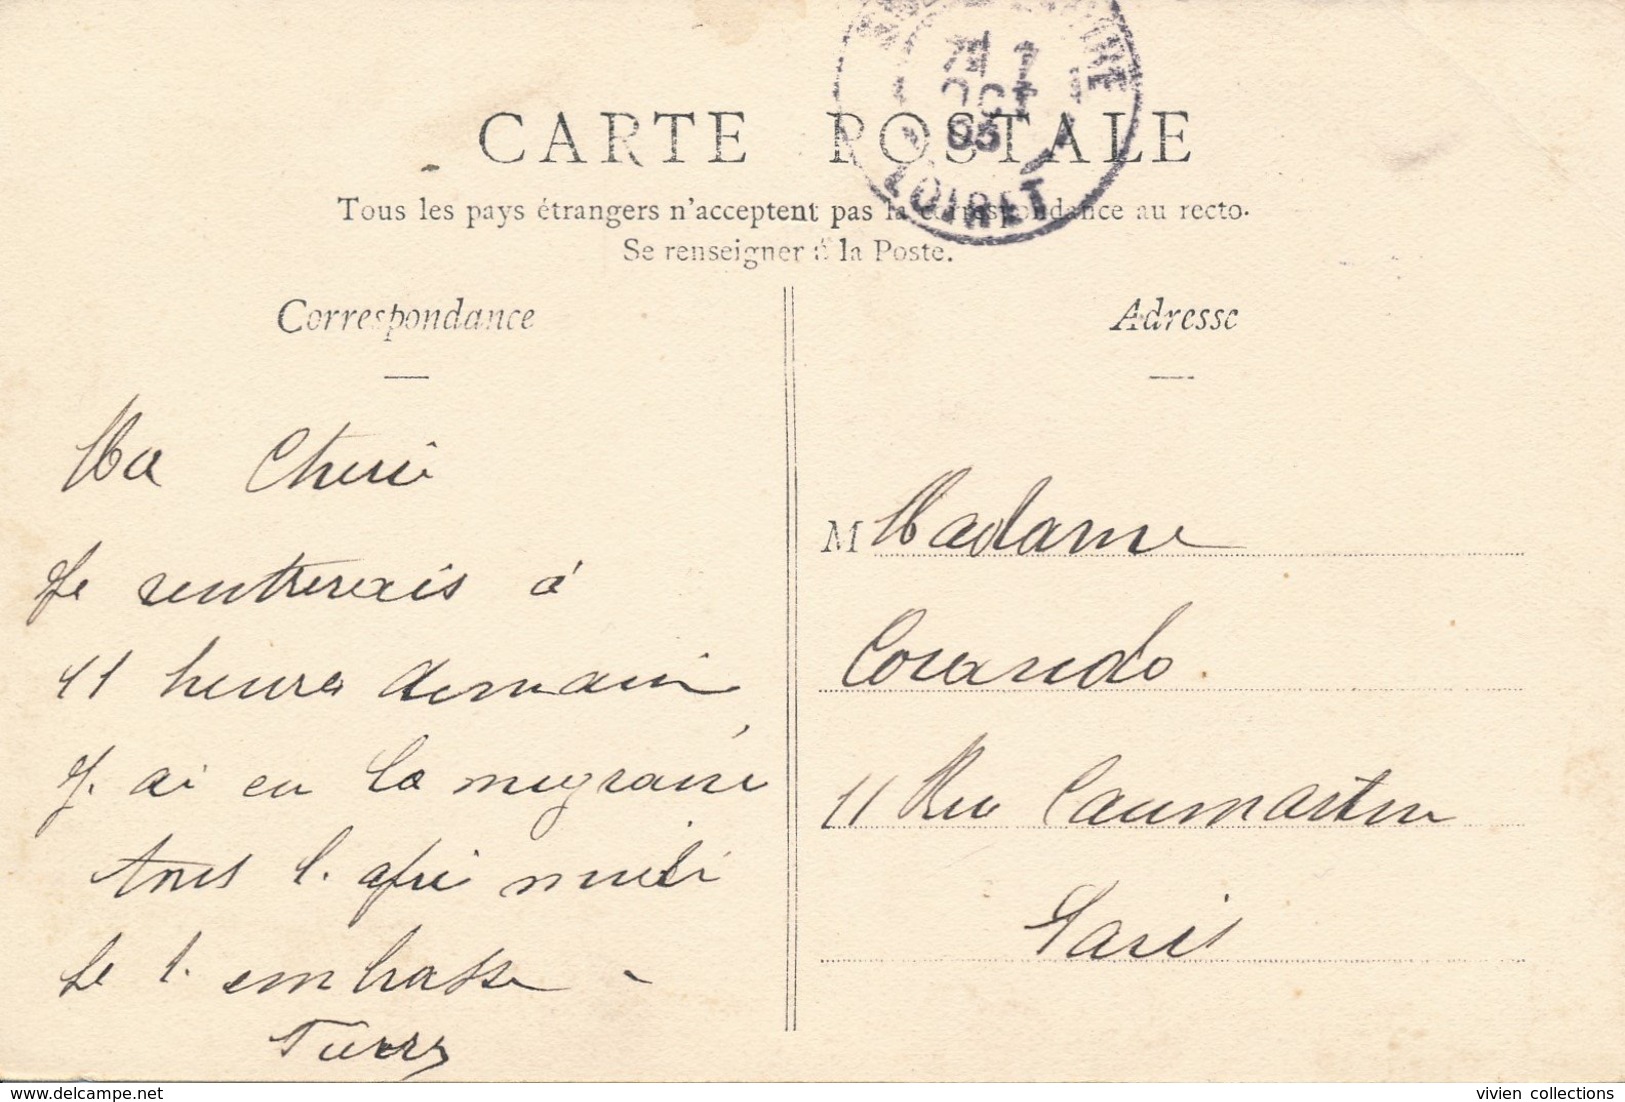 7 1
OCT
05
LOIRET
CARTE POSTALE
Tous les pays étrangers n'acceptent pas la correspondance au recto.
Se renseigner à la Poste.
Correspondance
Adresse
Ma Cherie
Je rentrerais à
11 heures demain
J. ai eu la migraine
tous l. apré midi
Je t. embrasse
M Madame
Corando.
11 Rue Caumartin
Paris
delcampe.net
vivien collections